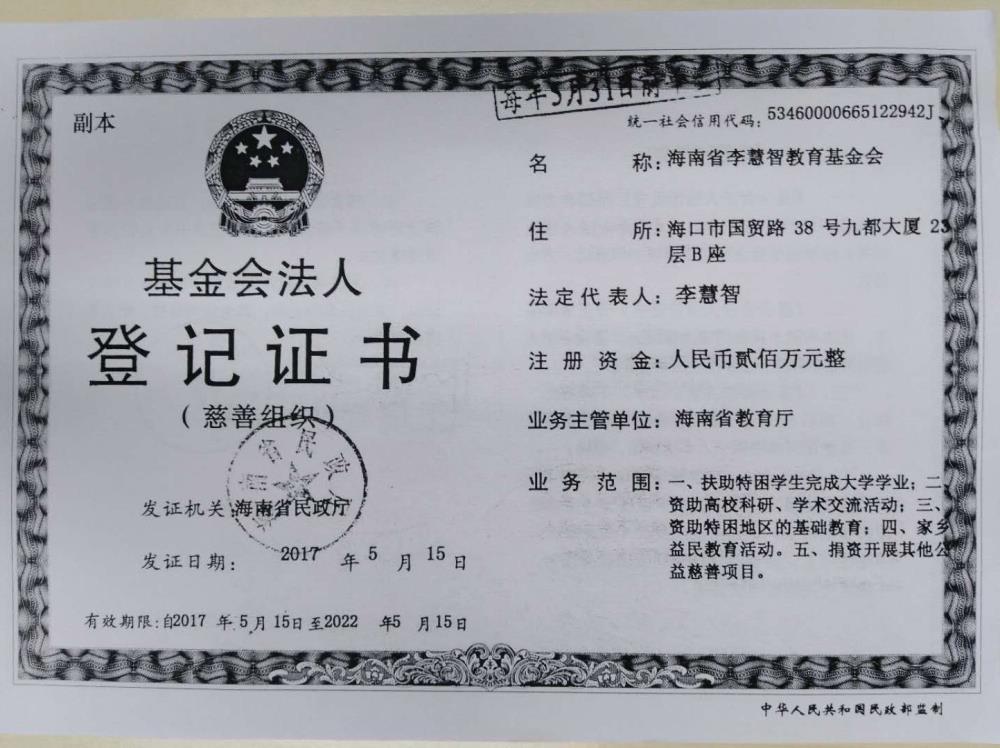 每年5月31日前
副本
统一社会信用代码：53460000665122942J
基金会法人
登记证书
（慈善组织）
发证机关：海南省民政厅
发证日期：2017年5月15日
有效期限：自2017年5月15日至2022年5月15日
名称：海南省李慧智教育基金会
住所：海口市国贸路 38 号九都大厦 23
层B座
法定代表人：李慧智
注册资金：人民币贰佰万元整
业务主管单位：海南省教育厅
业务范围：一、扶助特困学生完成大学学业；二、
资助高校科研、学术交流活动；三、
资助特困地区的基础教育；四、家乡
益民教育活动。五、捐资开展其他公
益慈善项目。
中华人民共和国民政部监制